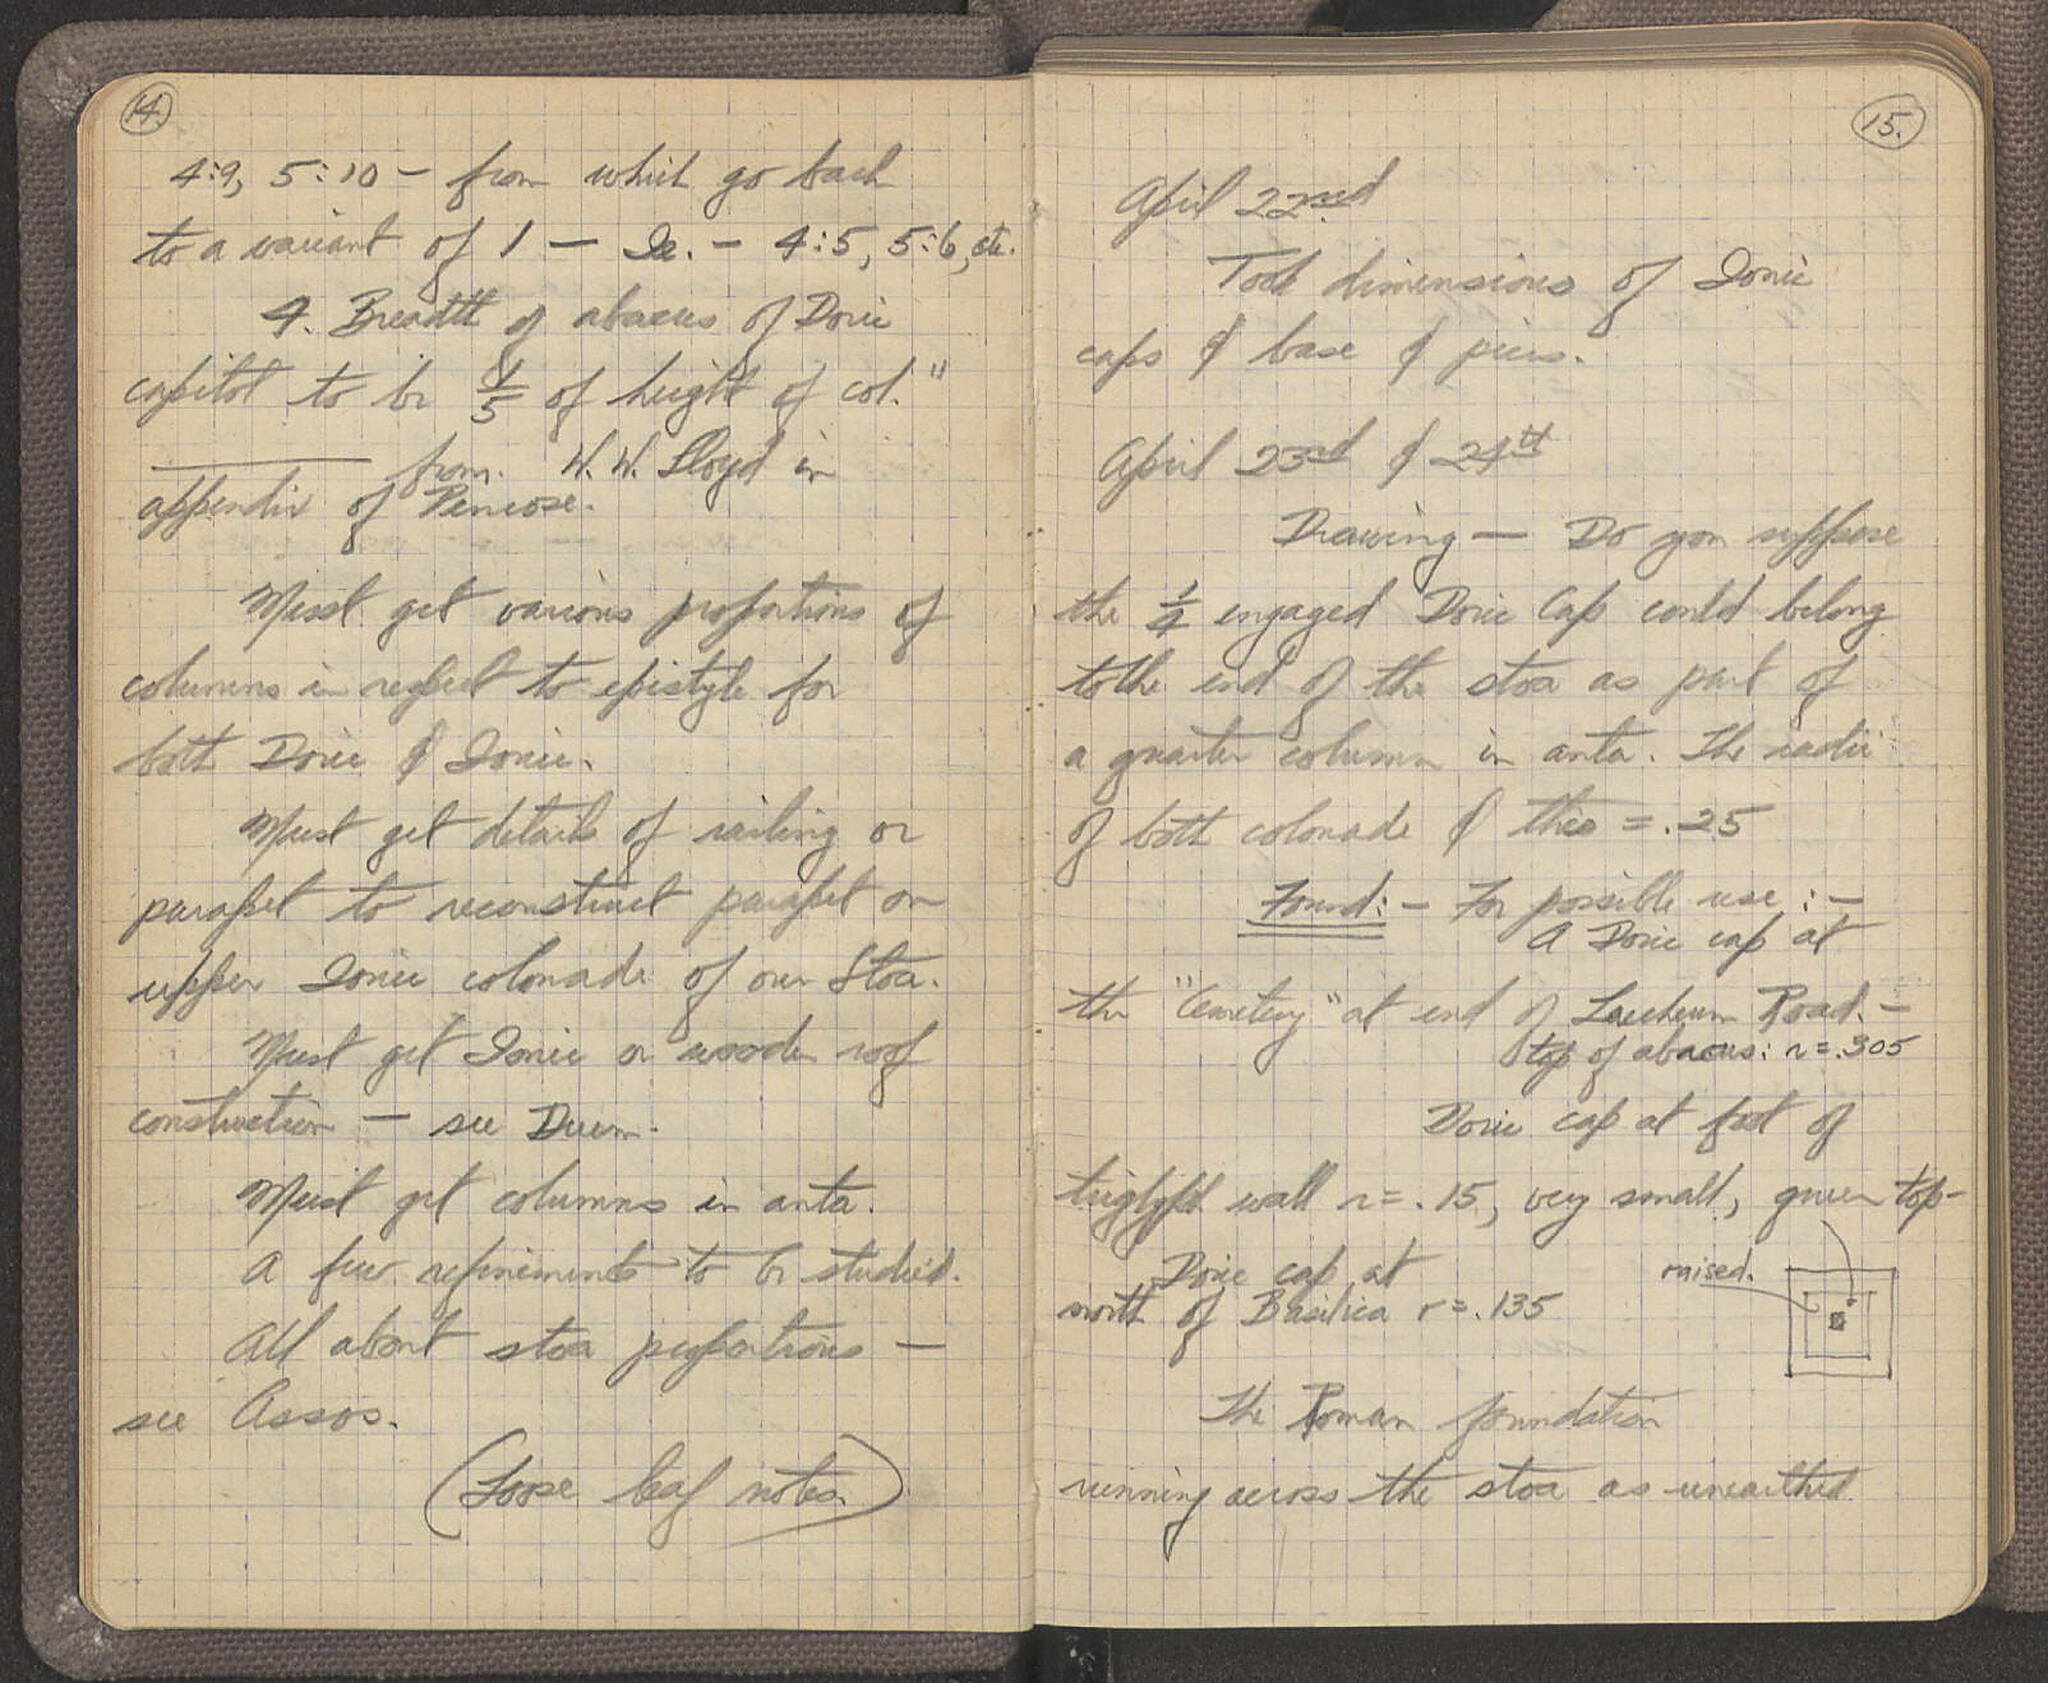 14.
4:9, 5:10 — from which go back
to a variant of 1 — Ie. — 4:5, 5:6, etc.
4. Breadth of abacus of Doric
capitol to be 1/5 of height of col."
from W. W. Lloyd in
appendix of Penrose.
Must get various proportions of
columns in respect to epistyle for
both Doric & Ionic.
Must get details of railing or
parapet to reconstruct parapet on
upper Ionic colonade of our Stoa.
Must get Ionic or wooden roof
construction — see Durm.
Must get columns in anta.
A few refinements to be studied.
All about stoa proportions —
see Assos.
(Loose leaf notes)
15.
April 22nd
Took dimensions of Ionic
caps & base & piers.
April 23rd & 24th
Drawing — Do you suppose
the 1/4 engaged Doric Cap could belong
to the end of the stoa as part of
a quarter column in anta. The radii
of both colonade & this = .25
Found: — For possible use : —
A Doric cap at
the "Cemetery" at end of Lecheum Road. —
top of abacus: r = .305
Doric cap at foot of
triglyph wall r = .15, very small, given top —
Doric cap at
raised.
north of Basilica r = .135
The Roman foundation
running across the stoa as unearthed